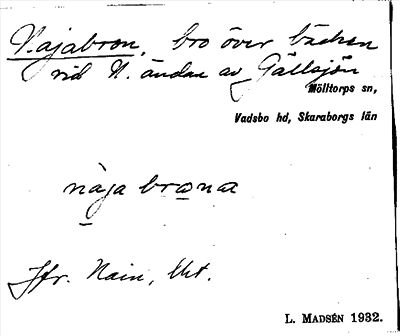 Najabron, bro över bäcken
vid N. ändan av Gällsjön
Mölltorps sn,
Vadsbo hd, Skaraborgs län
nàja brona
Jfr. Nain,
L. MADSÉN 1932.